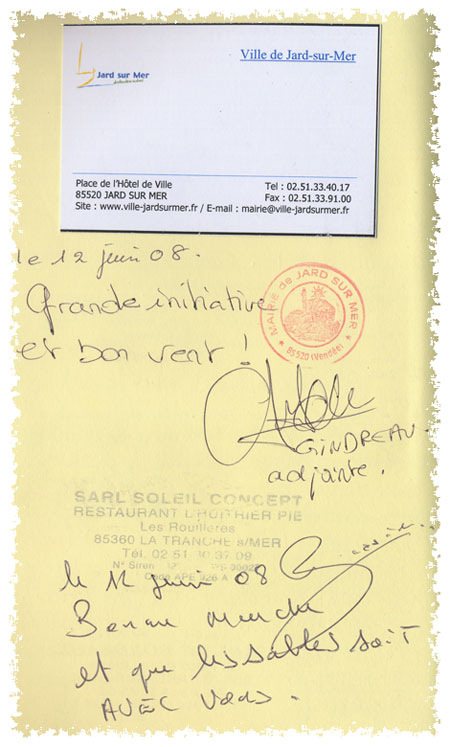 Ville de Jard-sur-Mer
Jard sur Mer
Place de l'Hôtel de Ville
Tel : 02.51.33.40.17
85520 JARD SUR MER
Fax : 02.51.33.91.00
Site : www.ville-jardsurmer.fr / E-mail : mairie@ville-jardsurmer.fr
le 12 juin 08.
Grande initiative
et bon vent !
MAIRIE de JARD SUR MER
85520 (Vendée)
GINDREAU.
adjointe.
SARL SOLEIL CONCEPT
RESTAURANT L'HUITRIER PIE
Les Rouillères
85360 LA TRANCHE s/MER
Tél. 02 51
N° Siren
Code APE
le 12 juin 08
et que les sables soit
AVEC vous.